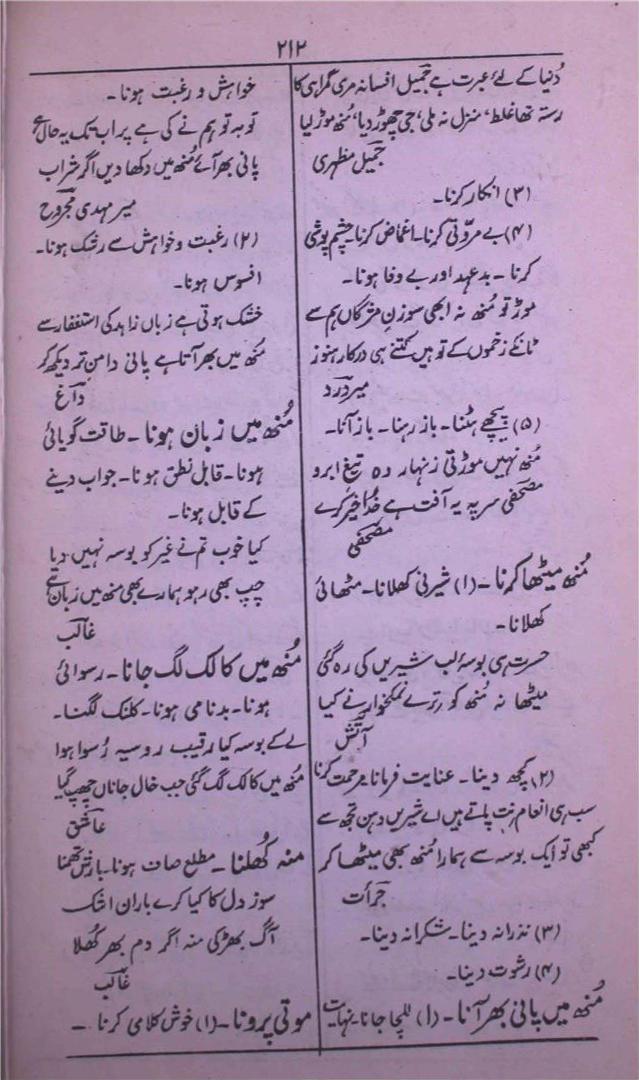 ۲۱۲
دُنیا کے لئے عبرت ہے جمیل افسانہ مری گمراہی کا
رستہ تھا غلط، منزل نہ ملی، جی چھوڑ دیا، مُنھ موڑ لیا
جمیل مظہری
(۳) انکار کرنا۔
(۴) بے مروّتی کرنا۔ اغماض کرنا۔ چشم پوشی
کرنا۔ بد عہد اور بے وفا ہونا۔
موڑ تو مُنھ نہ ابھی سوزنِ مژگاں ہم سے
ٹانکے زخموں کے تو ہیں کتنے ہی درکار ہنوز
میر درد
(۵) پیچھے ہٹنا۔ باز رہنا۔ باز آنا۔
مُنھ نہیں موڑتی زنہار وہ تیغِ ابرو
مصحفی سر پہ یہ آفت ہے خُدا خیر کرے
مصحفی
مُنھ میٹھا کرنا۔ (۱) شیرنی کھلانا۔ مٹھائی
کھلانا۔
حسرت ہی بوسۂ لب شیریں کی رہ گئی
میٹھا نہ مُنھ کو ترے نمکخوار نے کیا
آتش
(۲) کچھ دینا۔ عنایت فرمانا۔ مرحمت کرنا
سب ہی انعام نت پاتے ہیں اے شیریں دہن تجھ سے
کبھی تو ایک بوسہ سے ہمارا مُنھ بھی میٹھا کر
جرأت
(۳) نذرانہ دینا۔ شکرانہ دینا۔
(۴) رشوت دینا۔
مُنھ میں پانی بھر آنا۔ (۱) للچا جانا۔ نہایت
خواہش و رغبت ہونا۔
توبہ تو ہم نے کی ہے پر اب تک یہ حال ہے
پانی بھر آئے مُنھ میں دکھا دیں اگر شراب
میر مہدی مجروح
(۲) رغبت و خواہش سے رشک ہونا۔
افسوس ہونا۔
خشک ہوتی ہے زباں زاہد کی استغفار سے
مُنھ میں بھر آتا ہے پانی دامنِ تر دیکھ کر
داغ
مُنھ میں زبان ہونا۔ طاقت گویائی
ہونا۔ قابل نطق ہونا۔ جواب دینے
کے قابل ہونا۔
کیا خوب تم نے غیر کو بوسہ نہیں دیا
چپ بھی رہو ہمارے بھی منھ میں زبان ہے
غالب
مُنھ میں کالک لگ جانا۔ رسوائی
ہونا۔ بدنامی ہونا۔ کلنک لگنا۔
لے کے بوسہ کیا رقیب روسیہ رُسوا ہوا
مُنھ میں کالک لگ گئی جب خال جاناں چھپ گیا
عاشق
منہ کُھلنا۔ مطلع صاف ہونا۔ بارش تھمنا
سوز دل کا کیا کرے باران اشک
آگ بھڑکی منہ اگر دم بھر کُھلا
غالب
موتی پرونا۔ (۱) خوش کلامی کرنا۔